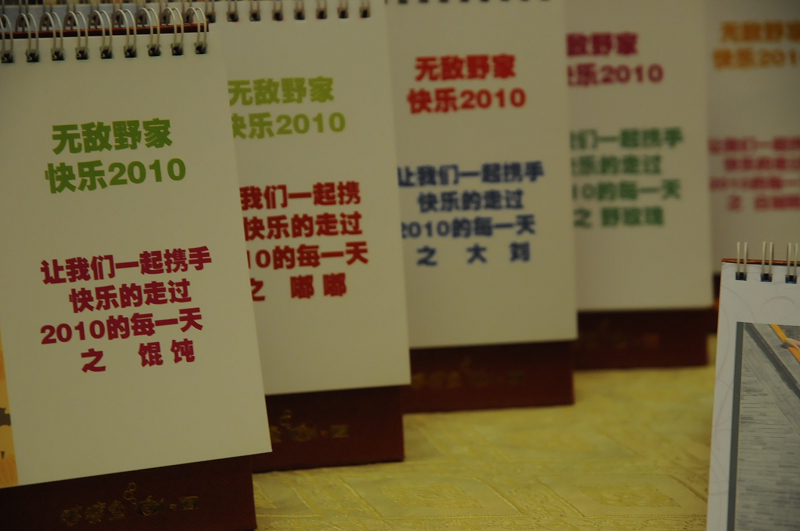 无敌野家
快乐2010
让我们一起携手
快乐的走过
2010的每一天
之 馄饨
无敌野家
快乐2010
我们一起携
快乐的走过
10的每一天
之 嘟嘟
无敌野家
快乐2010
让我们一起携手
快乐的走过
2010的每一天
之 大刘
敌野家
快乐2010
们一起携手
乐的走过
10的每一天
之 野玫瑰
无敌野
快乐201
让我们一起携
快乐的走过